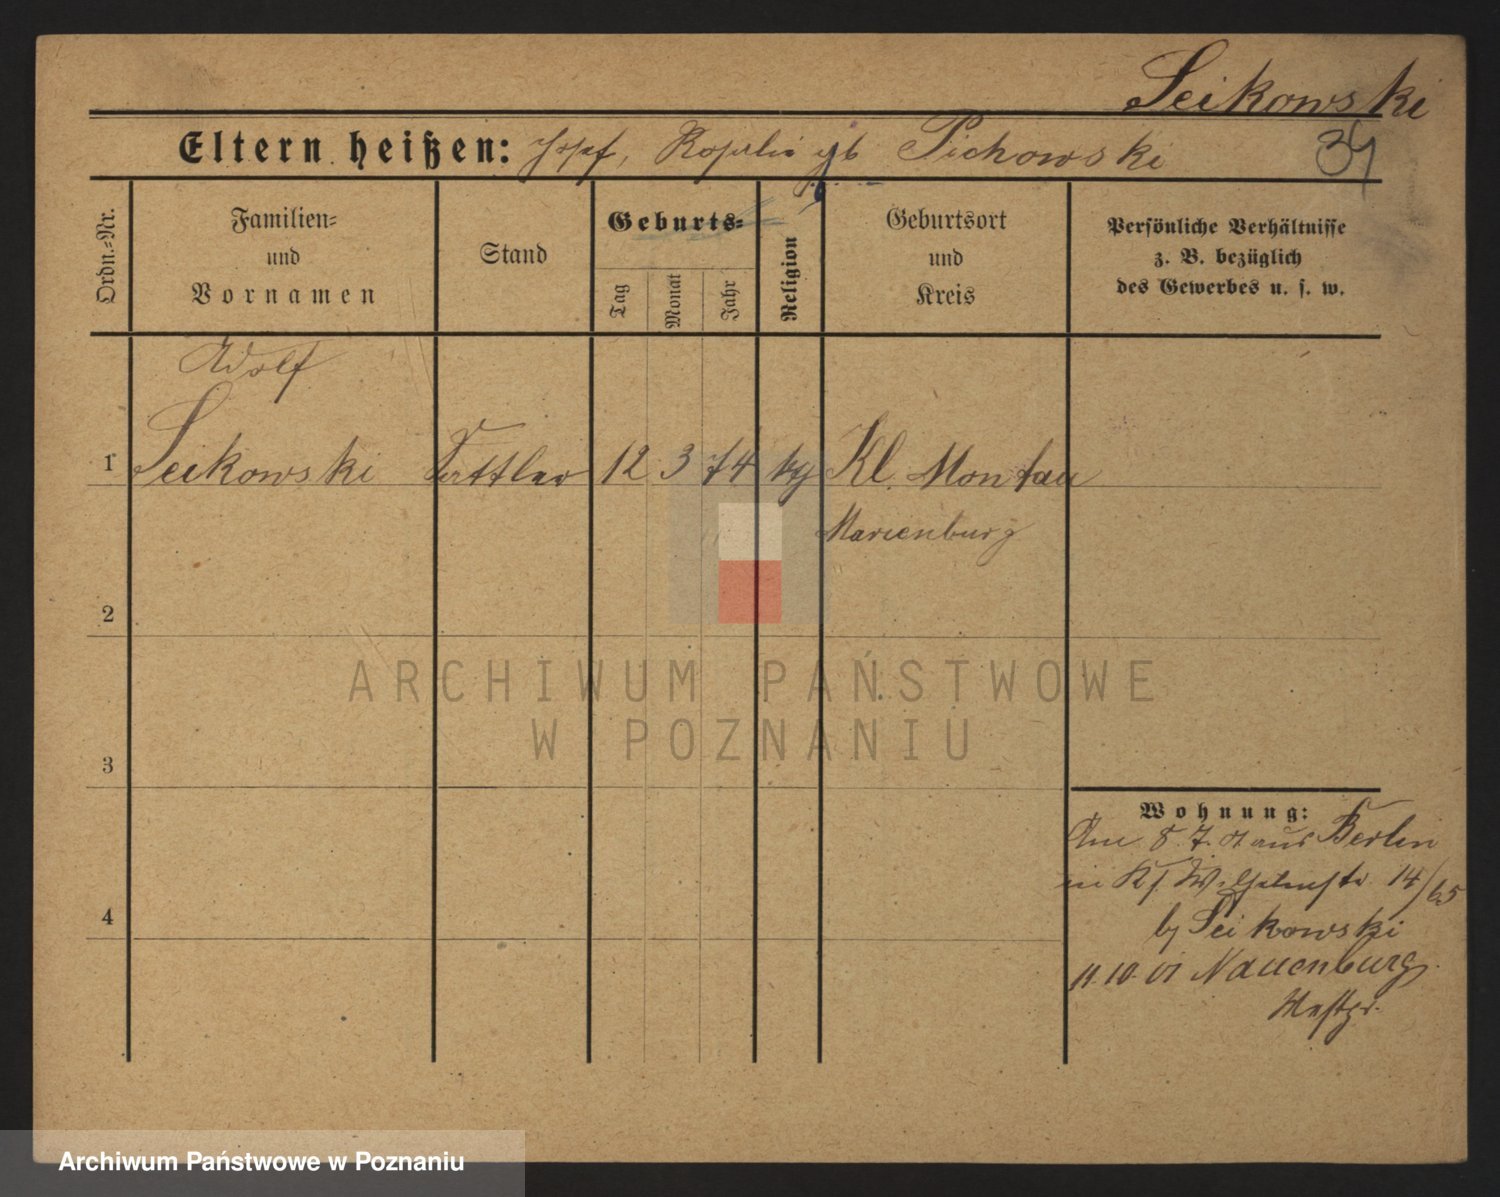 Seikowski
Eltern heißen: Josef, Rosalie gb Pichowski
34
Ordn.-Nr.
Familien-
und
Vornamen
Stand
Geburts-
Tag
Monat
Jahr
Religion
Geburtsort
und
Kreis
Persönliche Verhältnisse
z. B. bezüglich
des Gewerbes u. s. w.
Adolf
1 Seikowski Sattler 12 3 74 kg Kl. Montau
Marienburg
2
3
4
Wohnung:
Am 8. 7. 01 aus Berlin
in Wilhelmstr 14/65
b/ Seikowski
11. 10. 01 Nauenburg
Westpr.
ARCHIWUM PAŃSTWOWE
W POZNANIU
Archiwum Państwowe w Poznaniu